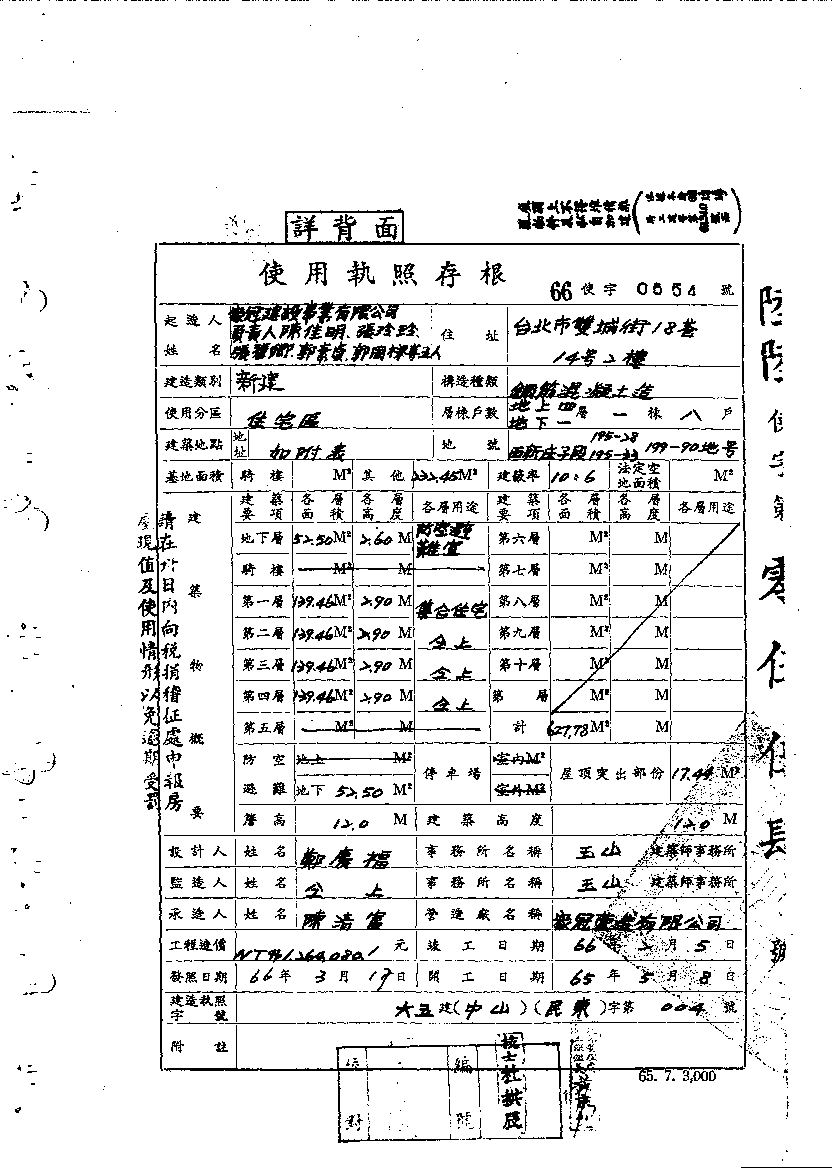 詳背面
使用執照存根
66 使字 0554 號
起造人 姓名
豪冠建設事業有限公司
負責人陳佳明、張玲玲
住址 台北市雙城街18巷
14号2樓
建造類別 新建 構造種類 鋼筋混凝土造
使用分區 住宅區 層棟戶數 地上四層 地下一 一棟 八戶
建築地點 地址 如附表 地號 西新庄子段 195-28 195-33 199-90地号
基地面積 騎樓 M² 其他 232.45M² 建蔽率 10:6 法定空地面積 M²
建築物概要
建築要項 各層面積 各層高度 各層用途 建築要項 各層面積 各層高度 各層用途
地下層 52.50M² 2.60M 防空避難室 第六層 M² M
騎樓 M² 第七層 M² M
第一層 139.46M² 2.90M 集合住宅 第八層 M² M
第二層 139.46M² 2.90M 仝上 第九層 M² M
第三層 139.46M² 2.90M 仝上 第十層 M² M
第四層 139.46M² 2.90M 仝上 第 層 M² M
第五層 M² M 計 627.78M² M
防空避難 地上 M² 停車場 室內M² 屋頂突出部份 17.44M²
地下 52.50M² 室外M²
簷高 12.0M 建築高度 12.0M
設計人 姓名 鄭慶福 事務所名稱 玉山 建築師事務所
監造人 姓名 仝上 事務所名稱 玉山 建築師事務所
承造人 姓名 陳清富 營造廠名稱 豪冠營造有限公司
工程造價 元 竣工日期 66年2月5日
發照日期 66年3月17日 開工日期 65年5月8日
建造執照字號 六五建(中山)(民東)字第004號
附註
65. 7. 3,000
校對 編號
請在卅日內向稅捐稽征處申報房
屋現值及使用情形以免逾期受罰
使字第零
號